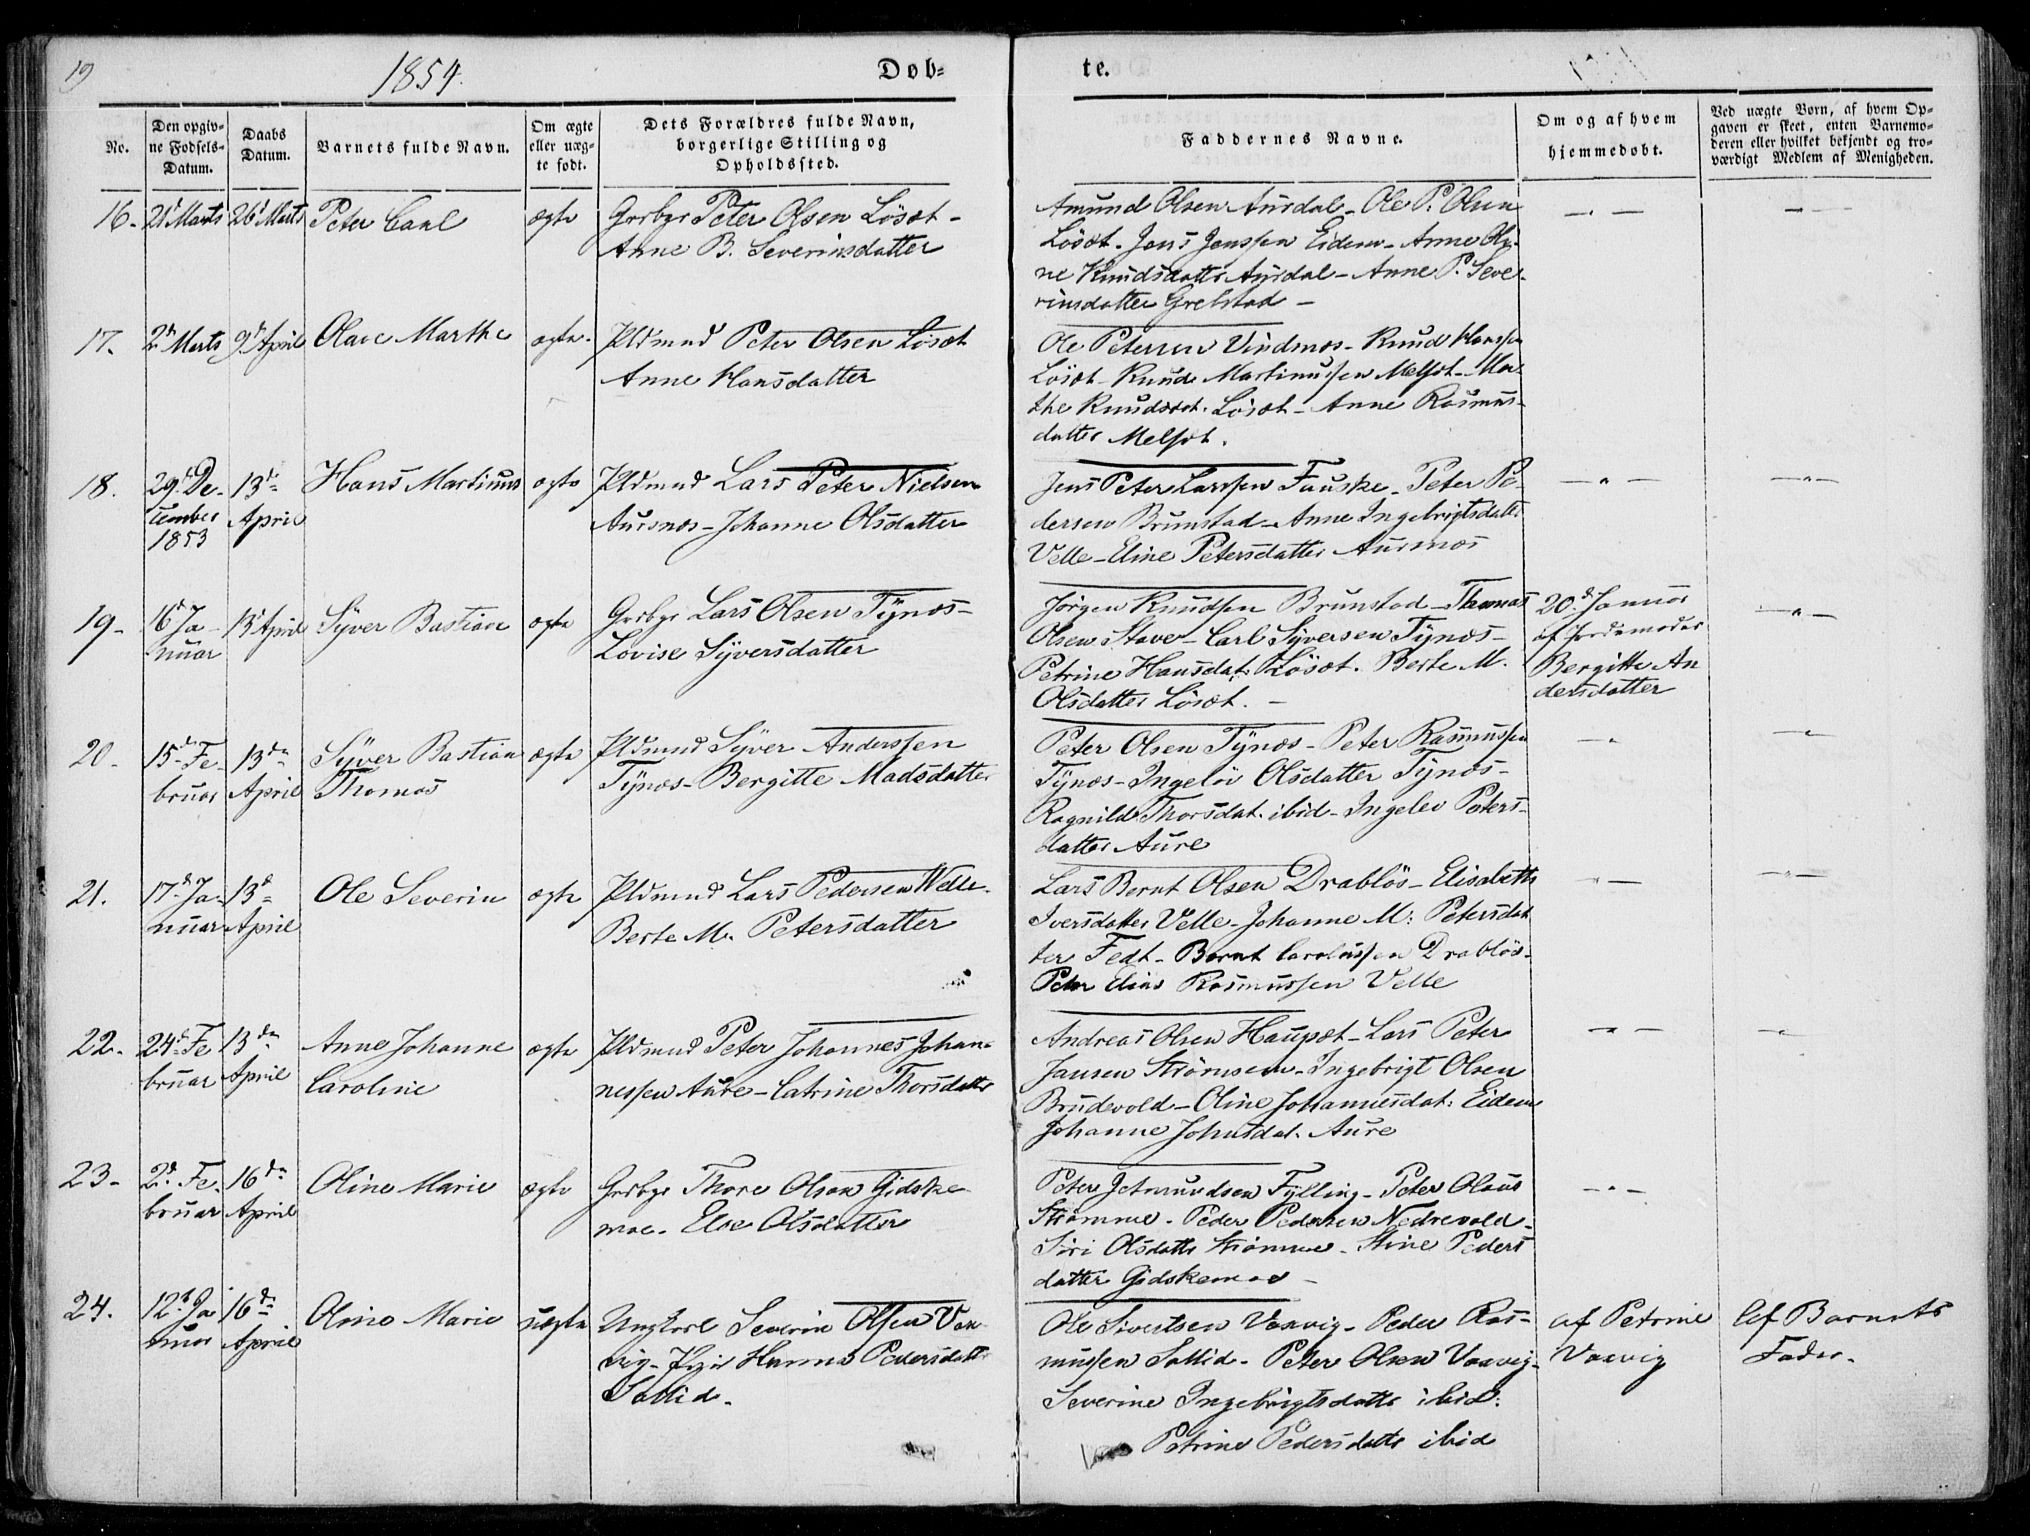 19
1854.
Døb-
te.
No.
Den opgiv-
ne Fødsels-
Datum.
Daabs
Datum.
Barnets fulde Navn.
Om ægte
eller uæg-
te født.
Dets Forældres fulde Navn,
borgerlige Stilling og
Opholdssted.
Faddernes Navne.
Om og af hvem
hjemmedøbt.
Ved uægte Børn, af hvem Op-
gaven er skeet, enten Barnemo-
deren eller hvilket bekjendt og tro-
værdigt Medlem af Menigheden.
16. 21 Marts 26 Marts Peter Carl ægte Grdbgr Peter Olsen Løsæt -
Anne B. Severinsdatter
Amund Olsen Aursdal - Ole P. Olsen
Løsæt. Jens Jenssen Eidem - Anne Oly-
ne Knudsdatter Aursdal - Anne P. Seve-
rinsdatter Grebstad -
17. 2 Marts 9 April Olave Marthe ægte. Pldmnd Peter Olsen Løsæt
Anne Hansdatter
Ole Petersen Vindsnes - Knud Hanssen
Løsæt - Knud Martinussen Melsæt - Mar-
the Knudsdat. Løsæt - Anne Rasmus-
datter Melsæt.
18. 29 De-
cember
1853
13de
April
Hans Martinus ægte Pldmnd Lars Peter Nielsen
Aursnes - Johanne Olsdatter
Jens Peter Larssen Fauske - Peter Pe-
dersen Brunstad - Anne Ingebrigtsdatter
Velle - Eline Petersdatter Aursnes
19. 16d Ja-
nuar
13 April Syver Bastian ægte Grdbgr Lars Olsen Tynes -
Lovise Syversdatter
Jørgen Knudsen Brunstad - Thomas
Olsen Stave - Carl Syversen Tynes -
Petrine Hansdat. Løsæt. Berte M.
Olsdatter Løsæt. -
20d Januar
af Jordemoder
Bergitte An
dersdatter
20. 15de Fe-
bruar
13de
April
Syver Bastian
Thomas
ægte Pldmnd Syver Anderssen
Tynes - Bergitte Madsdatter
Peter Olsen Tynes - Peter Rasmussen
Tynes - Ingeløv Olsdatter Tynes -
Ragnilde Thorsdat. ibid - Ingelev Peters-
datter Aure
21. 17d Ja-
nuar
13d
April
Ole Severin ægte Pldmnd Lars Pedersen Welle.
Berte M. Petersdatter
Lars Bernt Olsen Drabløs - Elisabeth
Iversdatter Velle - Johanne M: Petersdat
ter Fedt - Bernt Carolussen Drabløs -
Peter Elias Rasmussen Velle
22. 24d Fe
bruar
13de
April
Anne Johanne
Caroline
ægte Pldmnd Peter Johannes Johan-
nessen Aure - Catrine Thorsdatter
Andreas Olsen Haupæt - Lars Peter
Jansen Strømsem - Ingebrigt Olsen
Brudevold - Oline Johannesdat: Eidem
Johanne Johnsdat. Aure
23. 2d Fe-
bruar
16de
April
Oline Marie ægte Grdbgr Thore Olsen Gidske
moe - Else Olsdatter
Peter Jetmundsen Fylling - Peter Olaus
Strømme - Peder Pedersen Nedrevold -
Siri Olsdatter Strømme - Stine Peders
datter Gidskemoe -
24. 12t Ja
nuar
16de
April
Oline Marie uægte Ungkarl Severin Olsen Vaa
vig - Pige Hanna Pedersdatter
Søllid.
Ole Sivertsen Vaavig - Peder Ras-
mussen Søllid - Peter Olsen Vaavig -
Severine Ingebrigtsdatter ibid.
Petrine Pedersdatter ibid
af Petrine
Vaavig
Af Barnets
Fader.